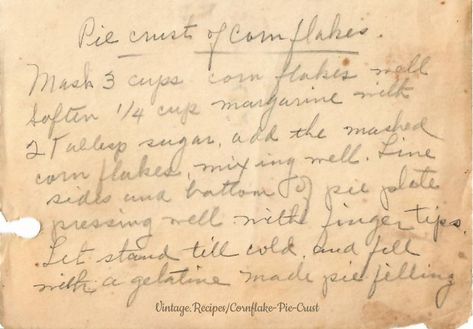 Pie crust of Corn flakes.
Mash 3 cups corn flakes well
Soften 1/4 cup margarine with
2 Tablesp sugar, add the mashed
corn flakes, mixing well. Line
sides and bottom of pie plate
pressing well with finger tips.
Let stand till cold, and fill
with a gelatine made pie filling
Vintage.Recipes/Cornflake-Pie-Crust